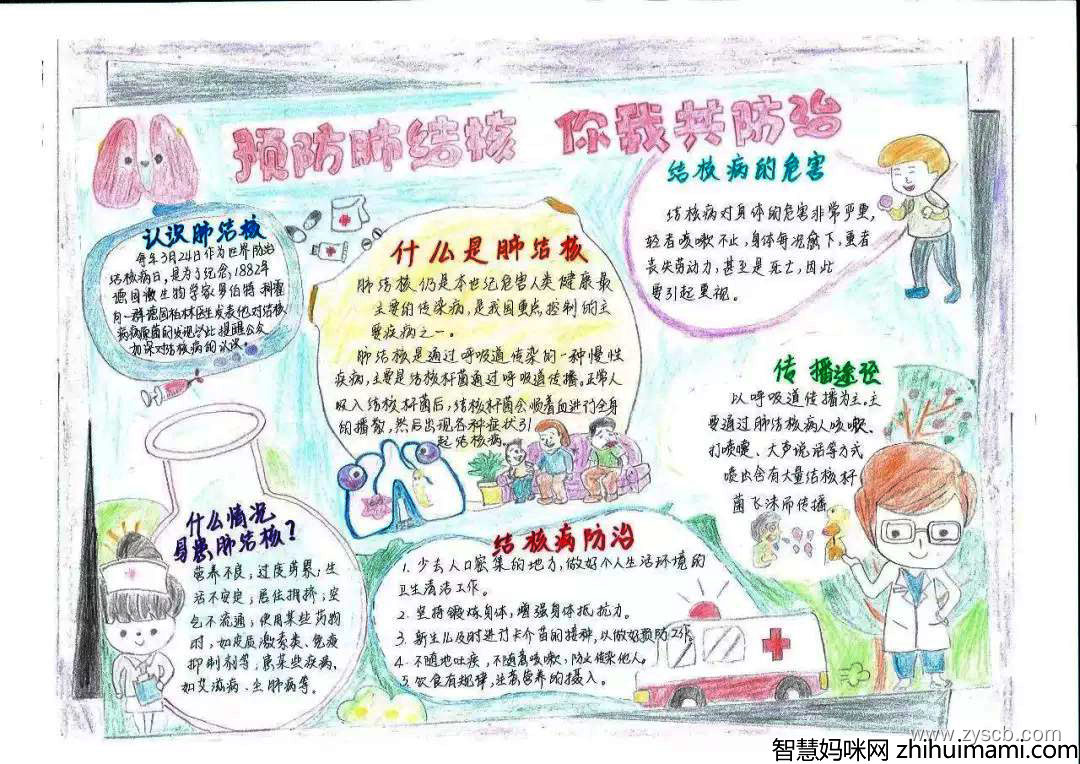 预防肺结核 你我共防治
认识肺结核
每年3月24日作为世界防治
结核病日,是为了纪念,1882年
德国微生物学家罗伯特·科霍
向一群德国柏林医生发表他对结核
病病原菌的发现学此提醒公众
加深对结核病的认识。
什么是肺结核
肺结核仍是本世纪危害人类健康最
主要的传染病,是我国重点控制的主
要疾病之一。
肺结核是通过呼吸道传染的一种慢性
疾病,主要是结核杆菌通过呼吸道传播。正常人
吸入结核杆菌后,结核杆菌会顺着血进行全身
的播散,然后出现各种症状引
起结核病。
结核病的危害
结核病对身体的危害非常严重,
轻者咳嗽不止,身体每况愈下,重者
丧失劳动力,甚至是死亡,因此
要引起重视。
传播途径
以呼吸道传播为主,主
要通过肺结核病人咳嗽、
打喷嚏、大声说话等方式
喷出含有大量结核杆
菌飞沫而传播
什么情况
易患肺结核?
营养不良,过度劳累,生
活不安定,居住拥挤,空
气不流通,使用某些药物
时,如皮质激素类、免疫
抑制剂等,患某些疾病、
如艾滋病、尘肺病等。
结核病防治
1.少去人口密集的地方,做好个人生活环境的
卫生清洁工作。
2.坚持锻炼身体,增强身体抵抗力。
3.新生儿及时进行卡介苗的接种,以做好预防工作
4.不随地吐痰,不随意咳嗽,防止传染他人。
5.饮食有规律,注意营养的摄入。
www.zyscb.com
智慧妈咪网 zhihuimami.com